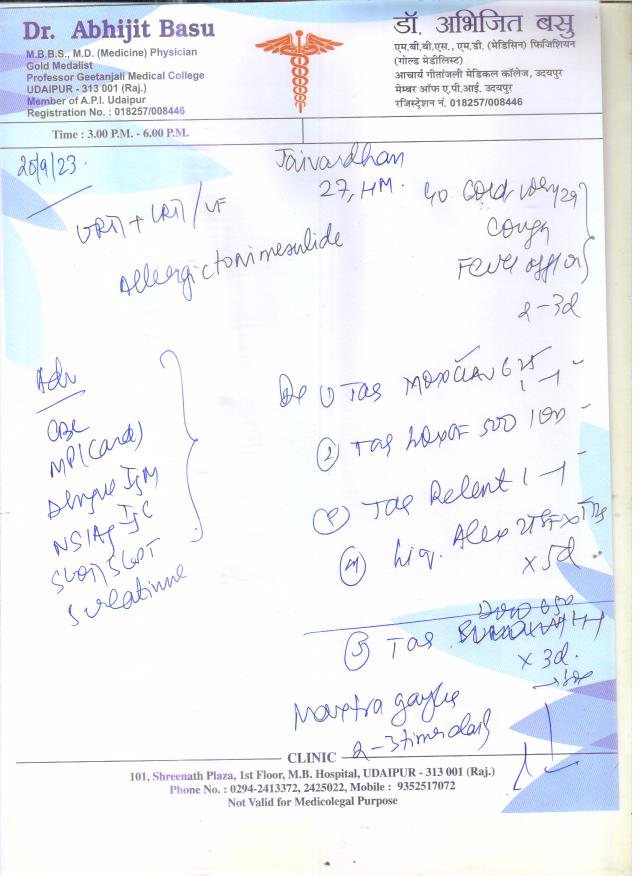 Dr. Abhijit Basu
M.B.B.S., M.D. (Medicine) Physician
Gold Medalist
Professor Geetanjali Medical College
UDAIPUR - 313 001 (Raj.)
Member of A.P.I. Udaipur
Registration No. : 018257/008446
डॉ. अभिजित बसु
एम.बी.बी.एस., एम.डी. (मेडिसिन) फिजिशियन
(गोल्ड मेडीलिस्ट)
आचार्य गीतांजली मेडिकल कॉलेज, उदयपुर
मेम्बर ऑफ ए.पी.आई. उदयपुर
रजिस्ट्रेशन नं. 018257/008446
Time : 3.00 P.M. - 6.00 P.M.
Jaivardhan
27, HM.
URTI + LRTI / VF
Allergic to nimesulide
Cold
Cough
Fever
2-3d
Adv
CBC
MP (Card)
Dengue IgM
NS1Ag
SGOT
S creatinine
Tab
② Tab 500
Tab Relent 1-1
④ Liq. Alex
x 5d
Dolo 650
⑤ Tab
x 3d.
gargle
2-3 times daily
CLINIC
101, Shreenath Plaza, 1st Floor, M.B. Hospital, UDAIPUR - 313 001 (Raj.)
Phone No. : 0294-2413372, 2425022, Mobile : 9352517072
Not Valid for Medicolegal Purpose